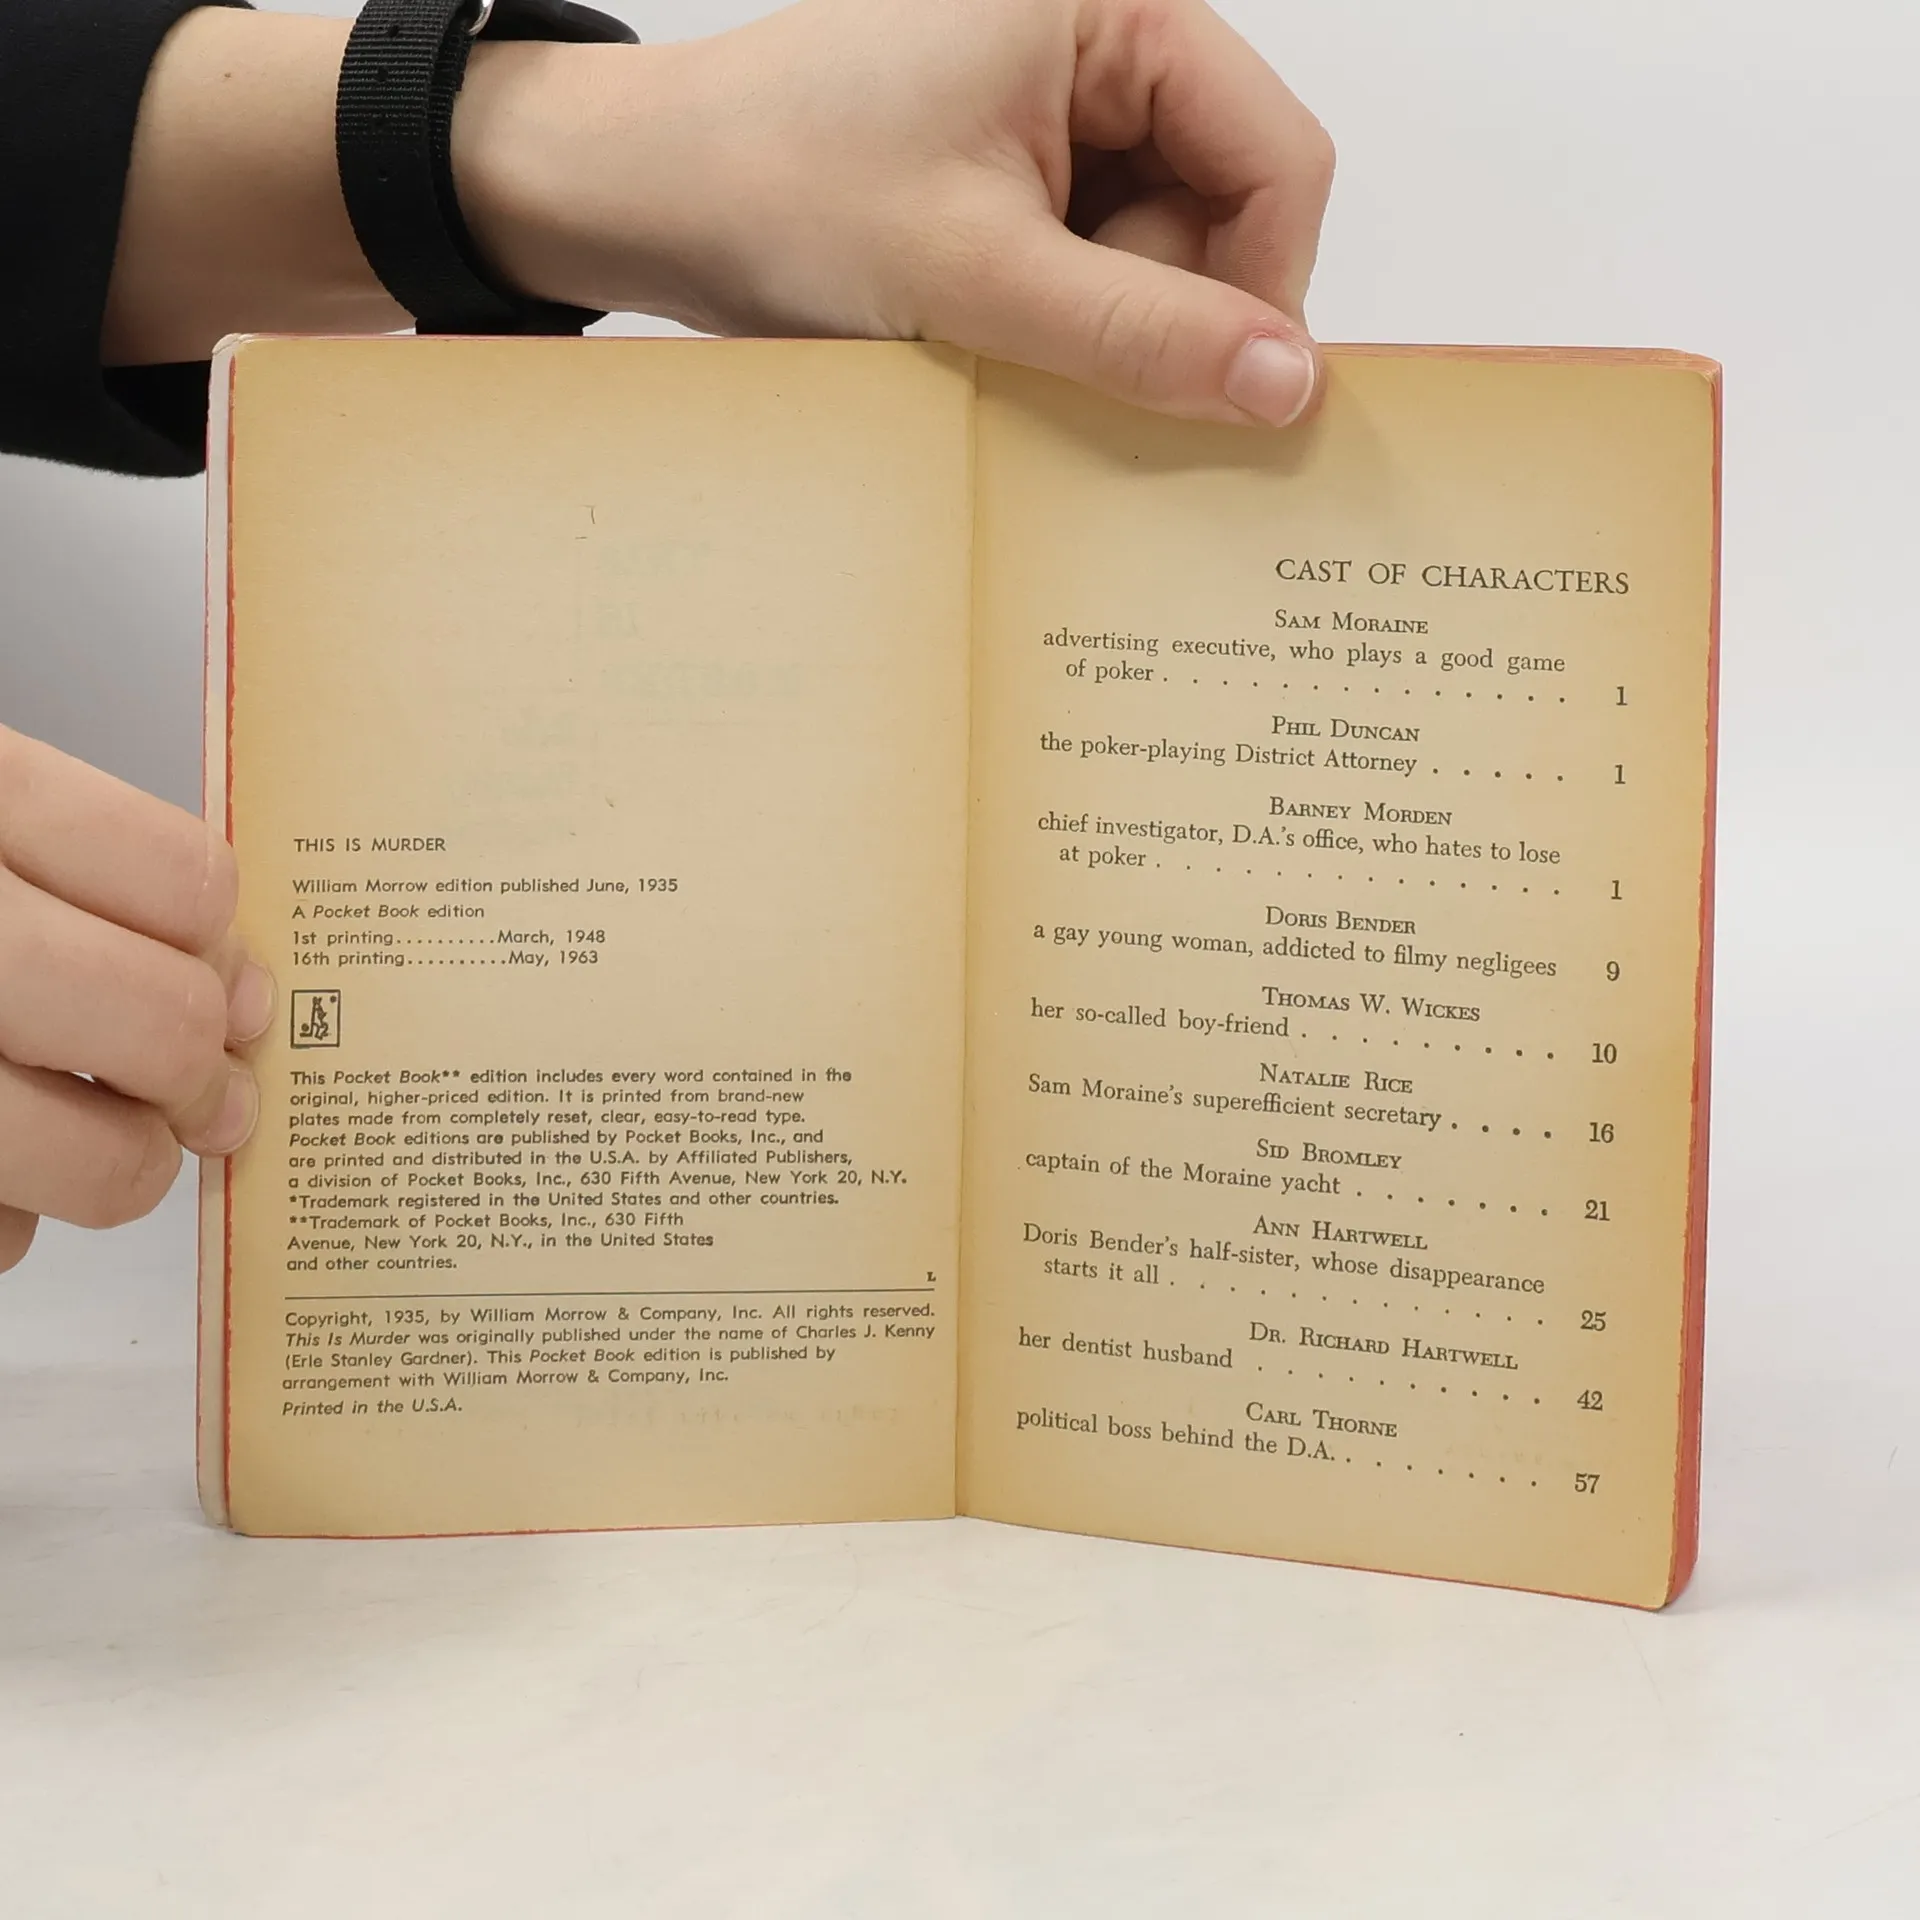 THIS IS MURDER
William Morrow edition published June, 1935
A Pocket Book edition
1st printing..........March, 1948
16th printing..........May, 1963
This Pocket Book** edition includes every word contained in the
original, higher-priced edition. It is printed from brand-new
plates made from completely reset, clear, easy-to-read type.
Pocket Book editions are published by Pocket Books, Inc., and
are printed and distributed in the U.S.A. by Affiliated Publishers,
a division of Pocket Books, Inc., 630 Fifth Avenue, New York 20, N.Y.
*Trademark registered in the United States and other countries.
**Trademark of Pocket Books, Inc., 630 Fifth
Avenue, New York 20, N.Y., in the United States
and other countries.
L
Copyright, 1935, by William Morrow & Company, Inc. All rights reserved.
This Is Murder was originally published under the name of Charles J. Kenny
(Erle Stanley Gardner). This Pocket Book edition is published by
arrangement with William Morrow & Company, Inc.
Printed in the U.S.A.
CAST OF CHARACTERS
SAM MORAINE
advertising executive, who plays a good game
of poker . . . . . . . . . . . . . . 1
PHIL DUNCAN
the poker-playing District Attorney . . . . . 1
BARNEY MORDEN
chief investigator, D.A.'s office, who hates to lose
at poker . . . . . . . . . . . . . . 1
DORIS BENDER
a gay young woman, addicted to filmy negligees 9
THOMAS W. WICKES
her so-called boy-friend . . . . . . . . . 10
NATALIE RICE
Sam Moraine's superefficient secretary . . . . 16
SID BROMLEY
captain of the Moraine yacht . . . . . . . 21
ANN HARTWELL
Doris Bender's half-sister, whose disappearance
starts it all . . . . . . . . . . . . . 25
DR. RICHARD HARTWELL
her dentist husband . . . . . . . . . . 42
CARL THORNE
political boss behind the D.A. . . . . . . . 57